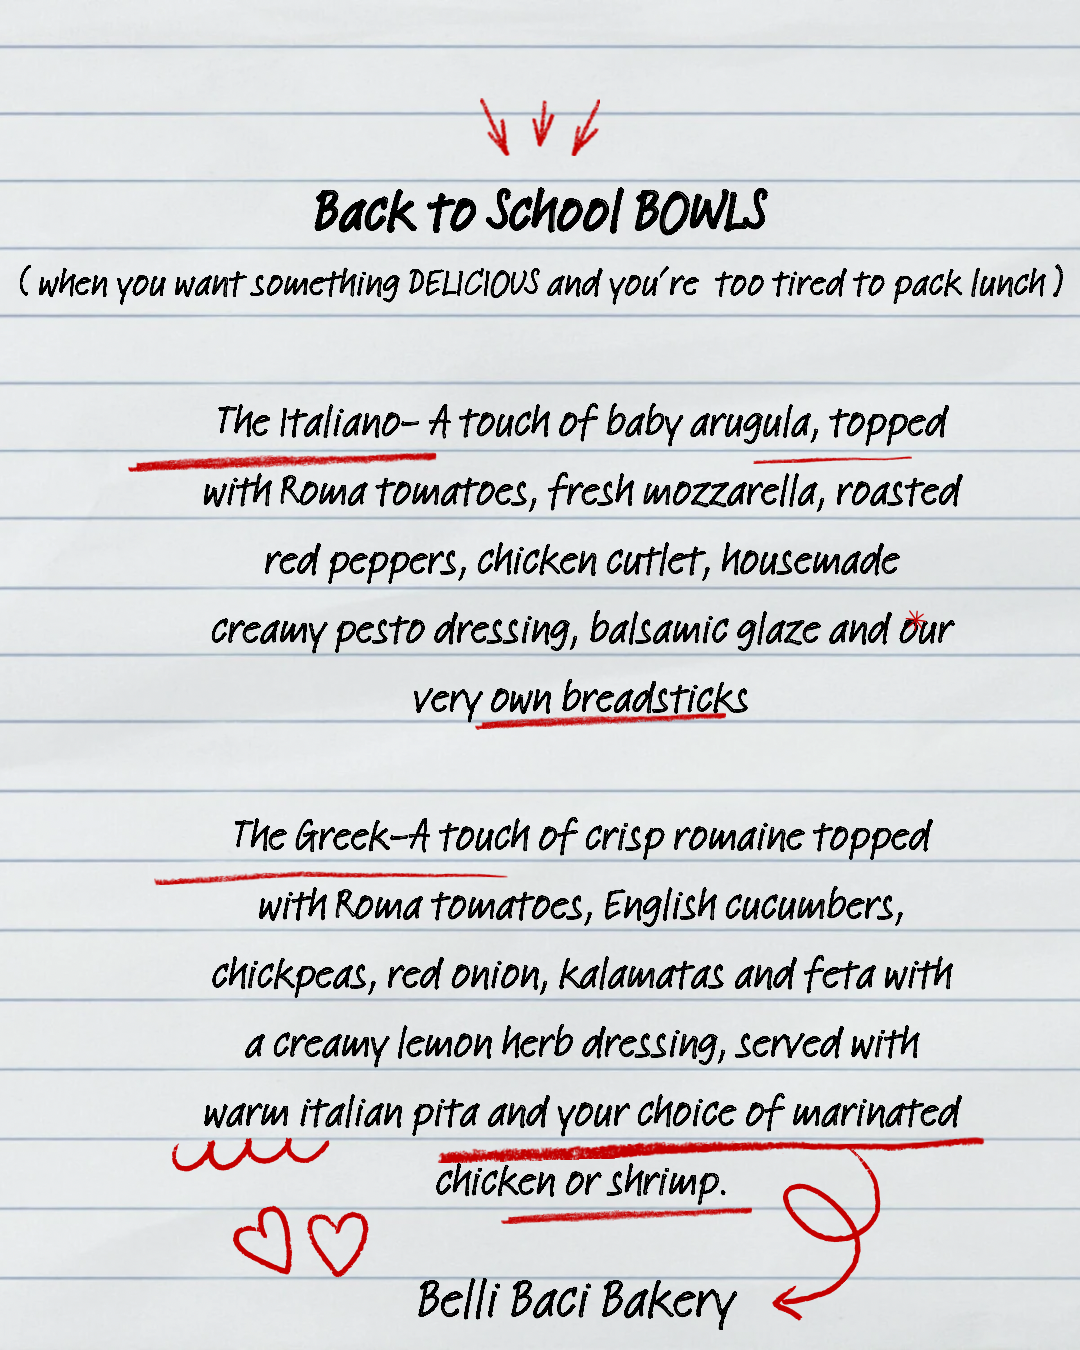 Back to School BOWLS
( when you want something DELICIOUS and you're too tired to pack lunch )
The Italiano- A touch of baby arugula, topped
with Roma tomatoes, fresh mozzarella, roasted
red peppers, chicken cutlet, housemade
creamy pesto dressing, balsamic glaze and our
very own breadsticks
The Greek-A touch of crisp romaine topped
with Roma tomatoes, English cucumbers,
chickpeas, red onion, kalamatas and feta with
a creamy lemon herb dressing, served with
warm italian pita and your choice of marinated
chicken or shrimp.
Belli Baci Bakery